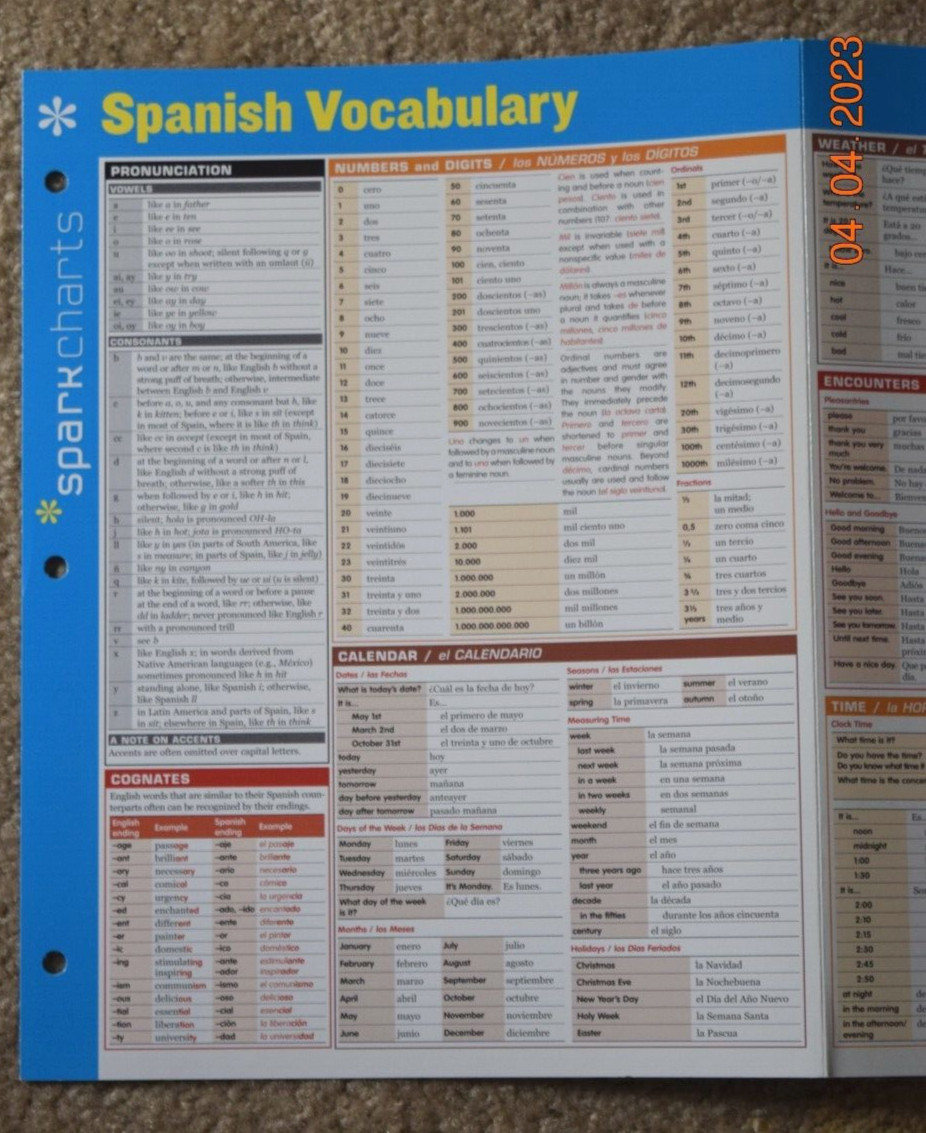 Spanish Vocabulary
04.04.2023
sparkcharts
PRONUNCIATION
VOWELS
a like a in father
e like e in ten
i like ee in see
o like o in rose
u like oo in shoot; silent following q or g
except when written with an umlaut (ü)
ai, ay like y in try
au like ow in cow
ei, ey like ay in day
ie like ye in yellow
oi, oy like oy in boy
CONSONANTS
b b and v are the same; at the beginning of a
word after m or n, like English b without a
strong puff of breath; otherwise, intermediate
between English b and English v
c before a, o, u, and any consonant but h, like
k in kitten; before e or i, like s in sit (except
in most of Spain, where it is like th in think)
cc like cc in accept (except in most of Spain,
where second c is like th in think)
d at the beginning of a word or after n or l,
like English d without a strong puff of
breath; otherwise, like a softer th in this
g when followed by e or i, like h in hit;
otherwise, like g in gold
h silent; hola is pronounced OH-la
j like h in hot; jota is pronounced HO-ta
ll like y in yes (in parts of South America, like
s in measure; in parts of Spain, like j in jelly)
ñ like ny in canyon
q like k in kite, followed by ue or ui (u is silent)
r at the beginning of a word or before a pause
at the end of a word, like rr; otherwise, like
dd in ladder; never pronounced like English r
rr with a pronounced trill
v see b
x like English x; in words derived from
Native American languages (e.g., México)
sometimes pronounced like h in hit
y standing alone, like Spanish i; otherwise,
like Spanish ll
z in Latin America and parts of Spain, like s
in sit; elsewhere in Spain, like th in think
A NOTE ON ACCENTS
Accents are often omitted over capital letters.
COGNATES
English words that are similar to their Spanish coun-
terparts often can be recognized by their endings.
English ending Example Spanish ending Example
-age passage -aje el pasaje
-ant brilliant -ante brillante
-ary necessary -ario necesario
-cal comical -co cómico
-cy urgency -cia la urgencia
-ed enchanted -ado, -ido encantado
-ent different -ente diferente
-er painter -or el pintor
-ic domestic -ico doméstico
-ing stimulating -ante estimulante
inspiring -ador inspirador
-ism communism -ismo el comunismo
-ous delicious -oso delicioso
-tial essential -cial esencial
-tion liberation -ción la liberación
-ty university -dad la universidad
NUMBERS and DIGITS / los NÚMEROS y los DÍGITOS
0 cero
1 uno
2 dos
3 tres
4 cuatro
5 cinco
6 seis
7 siete
8 ocho
9 nueve
10 diez
11 once
12 doce
13 trece
14 catorce
15 quince
16 dieciséis
17 diecisiete
18 dieciocho
19 diecinueve
20 veinte
21 veintiuno
22 veintidós
23 veintitrés
30 treinta
31 treinta y uno
32 treinta y dos
40 cuarenta
50 cincuenta
60 sesenta
70 setenta
80 ochenta
90 noventa
100 cien, ciento
101 ciento uno
200 doscientos (-as)
201 doscientos uno
300 trescientos (-as)
400 cuatrocientos (-as)
500 quinientos (-as)
600 seiscientos (-as)
700 setecientos (-as)
800 ochocientos (-as)
900 novecientos (-as)
Uno changes to un when
followed by a masculine noun
and to una when followed by
a feminine noun.
Cien is used when count-
ing and before a noun (cien
pesos). Ciento is used in
combination with other
numbers (107: ciento siete).
Mil is invariable (siete mil)
except when used with a
nonspecific value (miles de
dólares).
Millón is always a masculine
noun; it takes -es whenever
plural and takes de before
a noun it quantifies (cinco
millones, cinco millones de
habitantes).
Ordinal numbers are
adjectives and must agree
in number and gender with
the nouns they modify.
They immediately precede
the noun (la octava carta).
Primero and tercero are
shortened to primer and
tercer before singular
masculine nouns. Beyond
décimo, cardinal numbers
usually are used and follow
the noun (el siglo veintiuno).
1.000 mil
1.101 mil ciento uno
2.000 dos mil
10.000 diez mil
1.000.000 un millón
2.000.000 dos millones
1.000.000.000 mil millones
1.000.000.000.000 un billón
Ordinals
1st primer (-o/-a)
2nd segundo (-a)
3rd tercer (-o/-a)
4th cuarto (-a)
5th quinto (-a)
6th sexto (-a)
7th séptimo (-a)
8th octavo (-a)
9th noveno (-a)
10th décimo (-a)
11th decimoprimero
(-a)
12th decimosegundo
(-a)
20th vigésimo (-a)
30th trigésimo (-a)
100th centésimo (-a)
1000th milésimo (-a)
Fractions
½ la mitad;
un medio
0,5 zero coma cinco
⅓ un tercio
¼ un cuarto
¾ tres cuartos
3 ⅔ tres y dos tercios
3½ tres años y
years medio
CALENDAR / el CALENDARIO
Dates / las Fechas
What is today's date? ¿Cuál es la fecha de hoy?
It is... Es...
May 1st el primero de mayo
March 2nd el dos de marzo
October 31st el treinta y uno de octubre
today hoy
yesterday ayer
tomorrow mañana
day before yesterday anteayer
day after tomorrow pasado mañana
Days of the Week / los Días de la Semana
Monday lunes Friday viernes
Tuesday martes Saturday sábado
Wednesday miércoles Sunday domingo
Thursday jueves It's Monday. Es lunes.
What day of the week ¿Qué día es?
is it?
Months / los Meses
January enero July julio
February febrero August agosto
March marzo September septiembre
April abril October octubre
May mayo November noviembre
June junio December diciembre
Seasons / las Estaciones
winter el invierno summer el verano
spring la primavera autumn el otoño
Measuring Time
week la semana
last week la semana pasada
next week la semana próxima
in a week en una semana
in two weeks en dos semanas
weekly semanal
weekend el fin de semana
month el mes
year el año
three years ago hace tres años
last year el año pasado
decade la década
in the fifties durante los años cincuenta
century el siglo
Holidays / los Días Feriados
Christmas la Navidad
Christmas Eve la Nochebuena
New Year's Day el Día del Año Nuevo
Holy Week la Semana Santa
Easter la Pascua
WEATHER / el
¿Qué
hace?
temperature? ¿A qué
Está a 20
grados...
bajo
It is... Hace...
nice buen
hot calor
cool fresco
cold frío
bad mal
ENCOUNTERS
Pleasantries
please por
thank you gracias
thank you very muchas
much
You're welcome. De
No problem. No hay
Welcome to...
Hello and Goodbye
Good morning
Good afternoon
Good evening
Hello Hola
Goodbye Adiós
See you soon. Hasta
See you later. Hasta
See you tomorrow. Hasta
Until next time. Hasta
Have a nice day. Que
día.
TIME / la
Clock Time
What time is it?
Do you have the time?
Do you know what time
What time is the
It is... Es
noon
midnight
1:00
1:30
It is...
2:00
2:10
2:15
2:30
2:45
2:50
at night de
in the morning de
in the afternoon/ de
evening